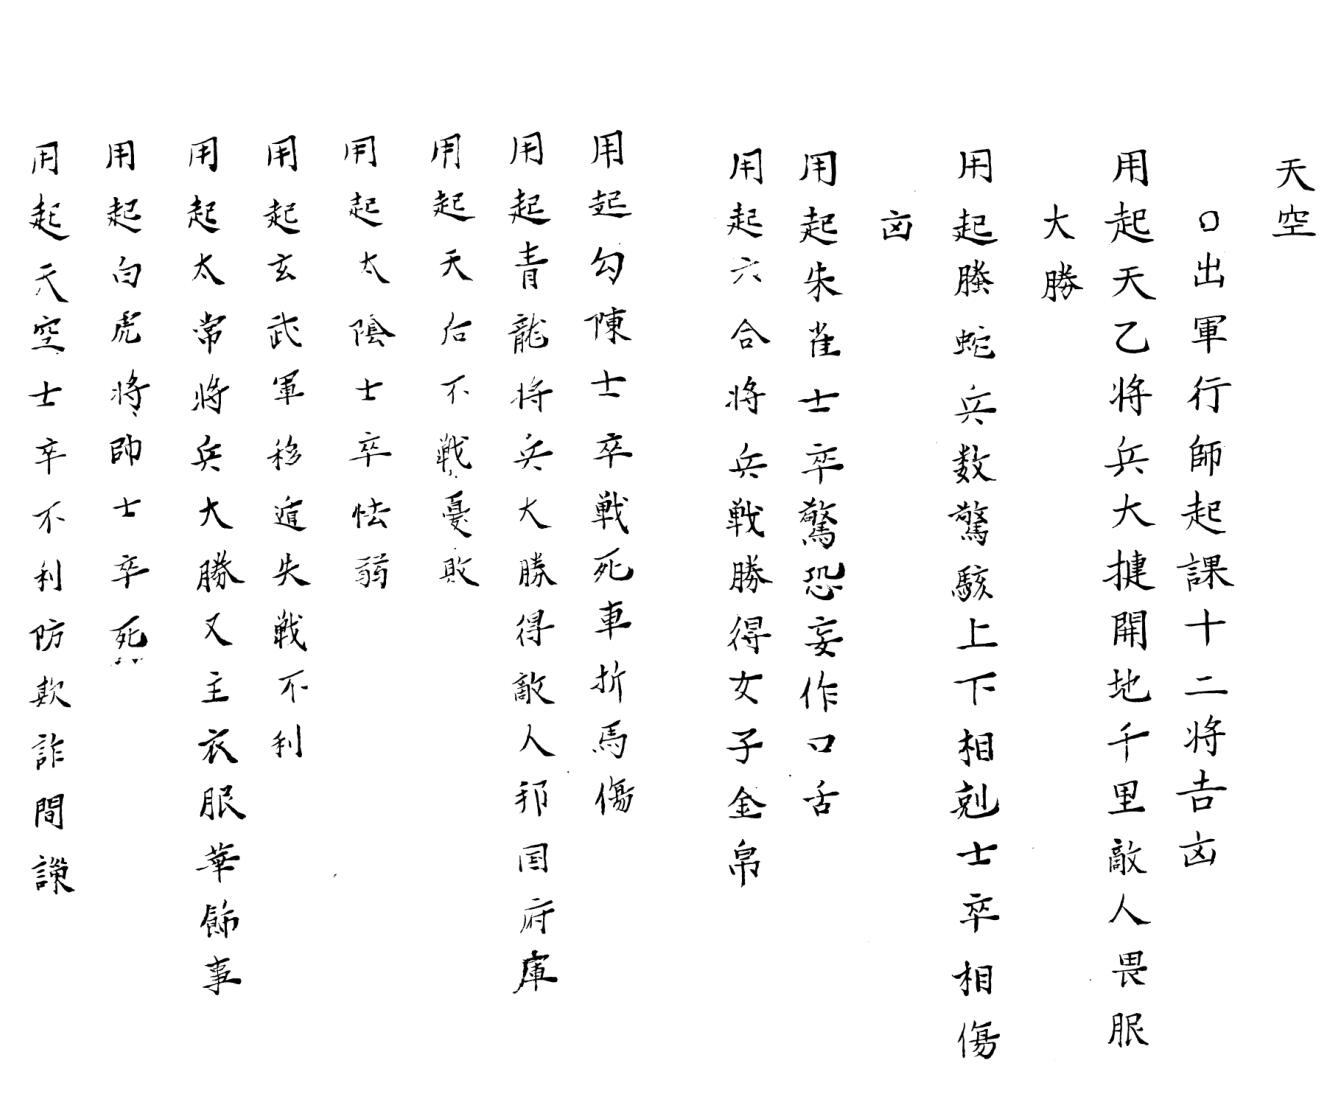 天空
○出軍行師起課十二将吉凶
用起天乙将兵大捷開地千里敵人畏服
大勝
用起螣蛇兵数驚駭上下相剋士卒相傷
凶
用起朱雀士卒驚恐妄作口舌
用起六合将兵戦勝得女子金帛
用起勾陳士卒戦死車折馬傷
用起青龍将兵大勝得敵人邦国府庫
用起天后不戦憂敗
用起太陰士卒怯弱
用起玄武軍移道失戦不利
用起太常将兵大勝又主衣服華飾事
用起白虎将帥士卒死
用起天空士卒不利防欺詐間諜